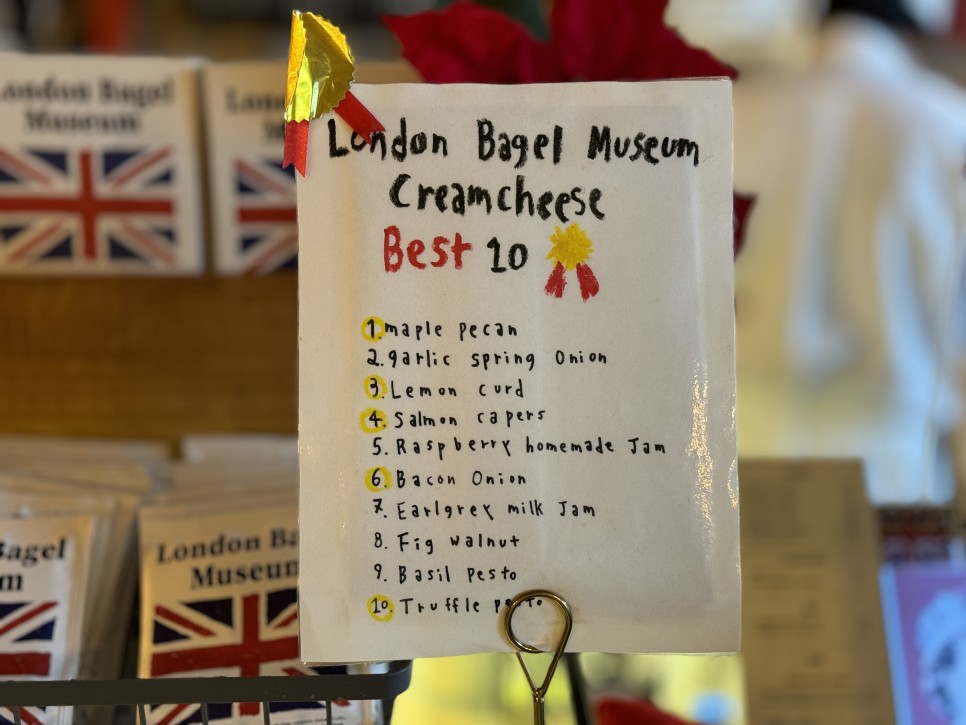 London Bagel
Museum
London Bagel Museum
Creamcheese
Best 10
1. maple pecan
2. garlic spring Onion
3. Lemon curd
4. Salmon capers
5. Raspberry homemade Jam
6. Bacon Onion
7. Earlgrey milk Jam
8. Fig walnut
9. Basil Pesto
10. Truffle
Bagel
London Ba
Museum